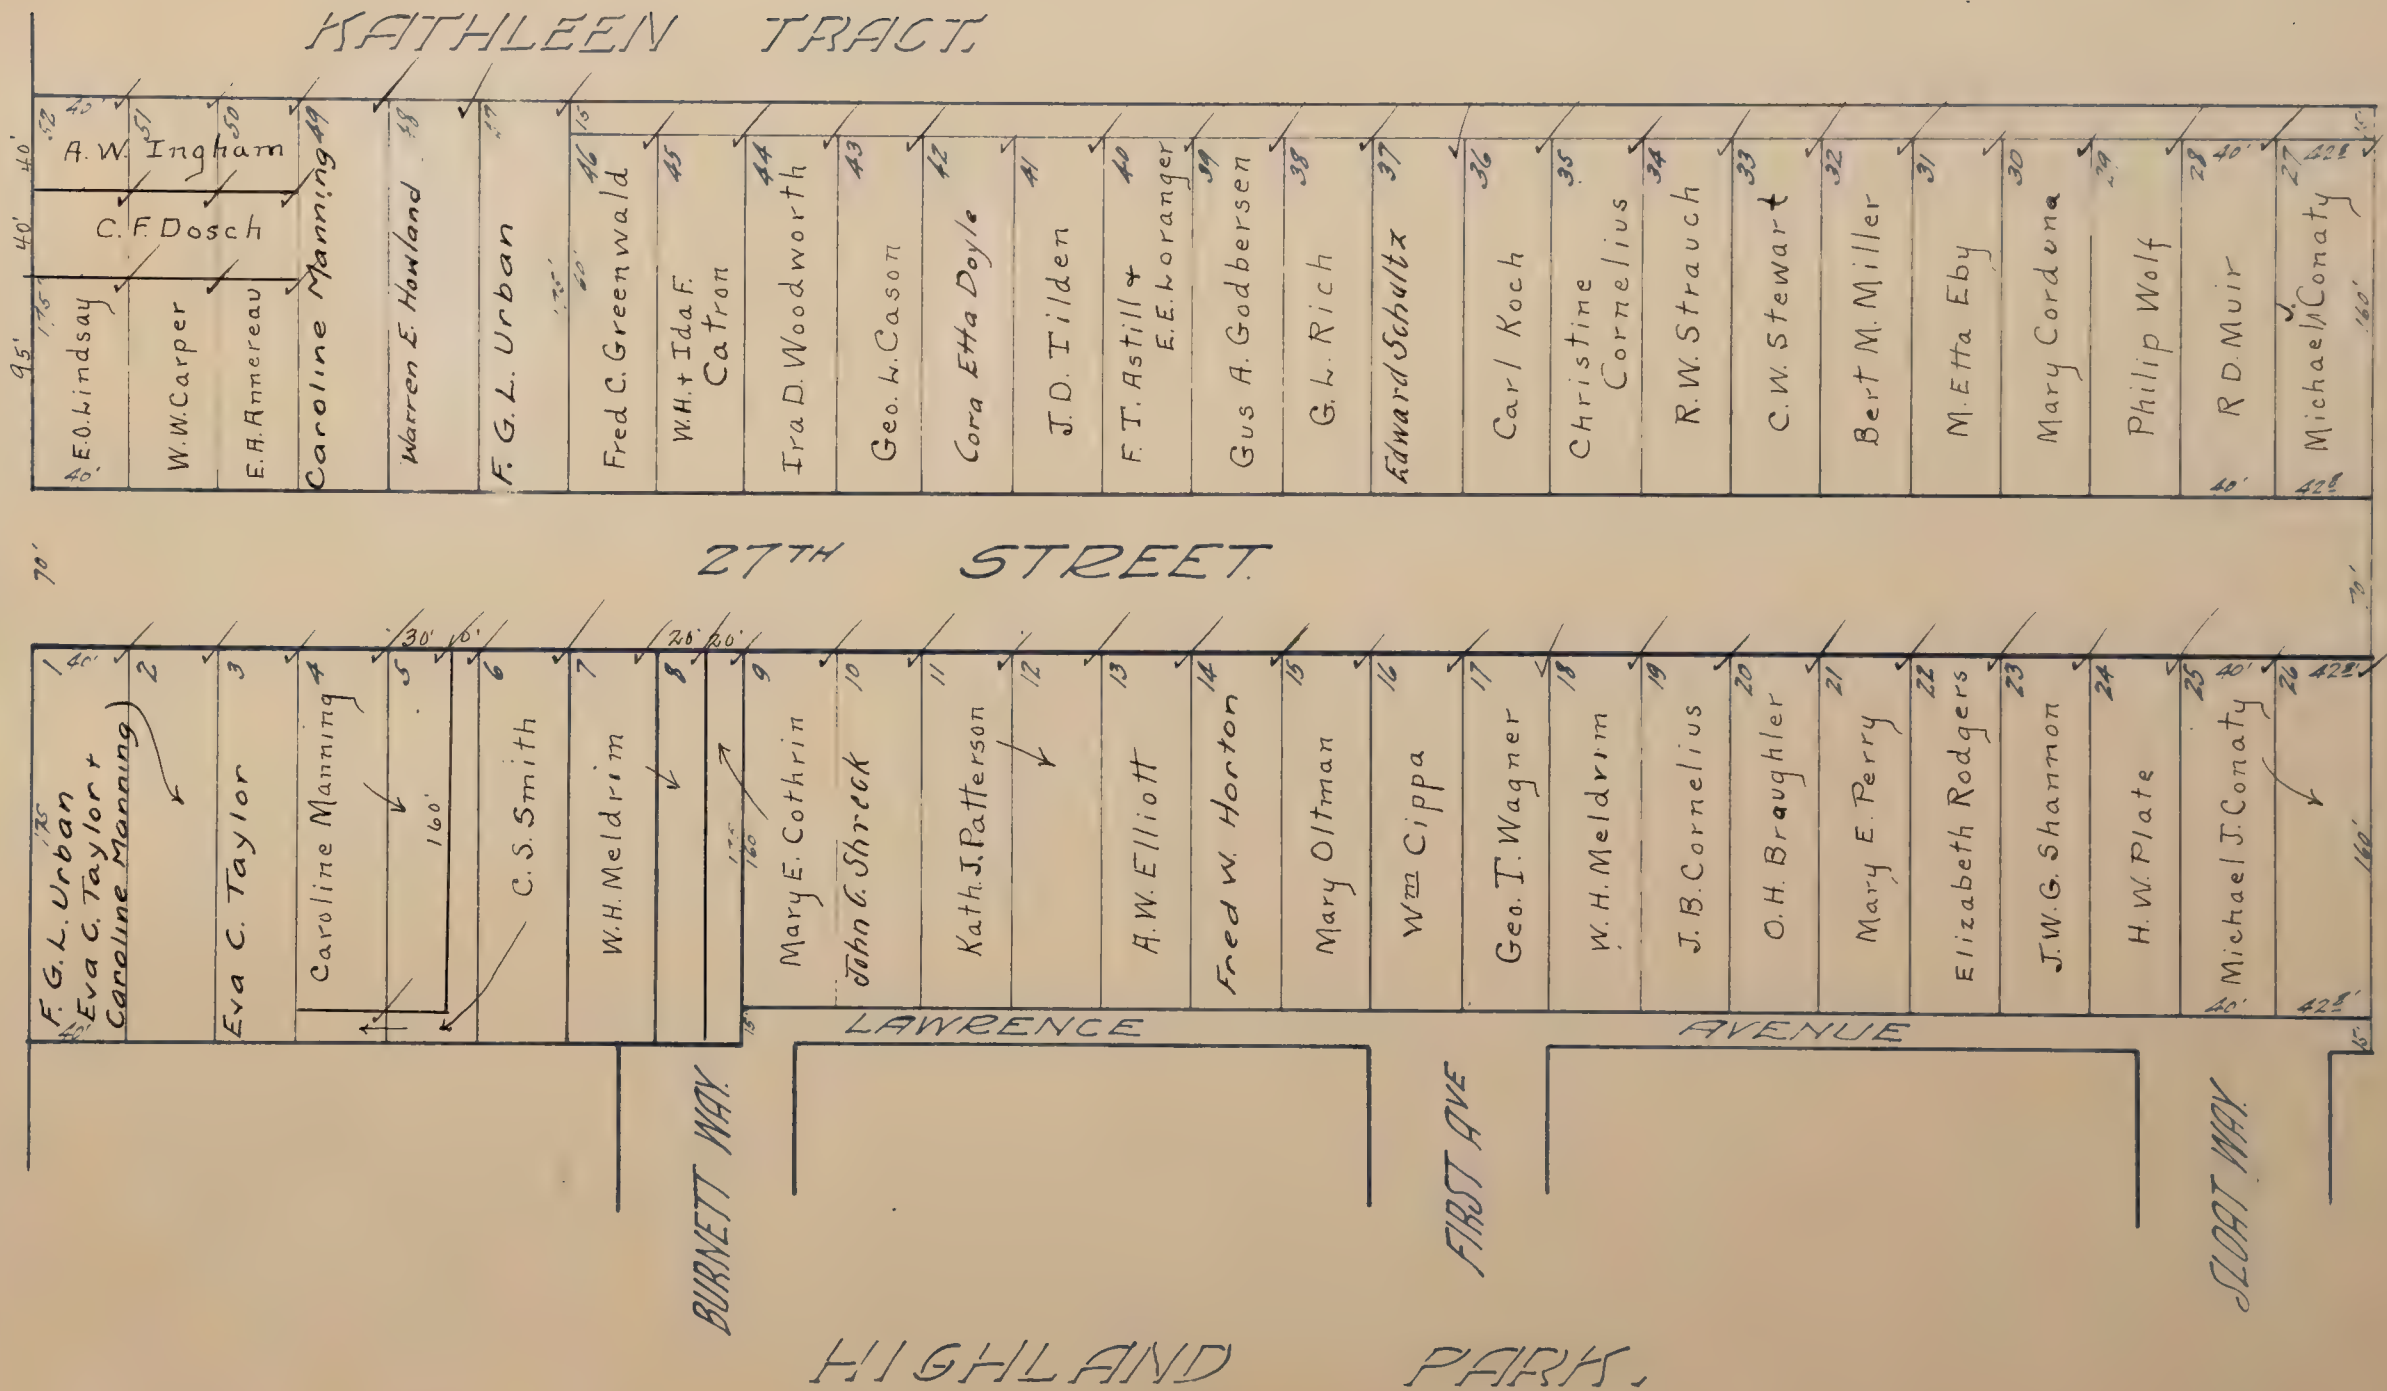 KATHLEEN TRACT.
40'
40'
95'
175'
52
40'
51
50
A. W. Ingham
C. F. Dosch
E. O. Lindsay
40'
W. W. Carper
E. A. Annereau
49
Caroline Manning
48
Warren E. Howland
47
F. G. L. Urban
175'
15'
160'
46
Fred C. Greenwald
45
W. H. + Ida F.
Catron
44
Ira D. Woodworth
43
Geo. L. Cason
42
Cora Etta Doyle
41
J. D. Tilden
40
F. T. Astill +
E. E. Loranger
39
Gus A. Godbersen
38
G. L. Rich
37
Edward Schultz
36
Carl Koch
35
Christine
Cornelius
34
R. W. Strauch
33
C. W. Stewart
32
Bert M. Miller
31
M. Etta Eby
30
Mary Corduna
29
Philip Wolf
28
40'
R D. Muir
40'
27
42 8
Michael J. Conaty
42 8
15'
160'
70'
27TH STREET.
70'
1
40'
F. G. L. Urban
Eva C. Taylor +
Caroline Manning
175
40'
2
3
Eva C. Taylor
4
Caroline Manning
5
30'
160'
6
C. S. Smith
7
W. H. Meldrim
8
20'
20'
175
160'
15'
9
Mary E. Cothrin
10
John G. Shreck
11
Kath. J. Patterson
12
13
A. W. Elliott
14
Fred W. Horton
15
Mary Oltman
16
Wm Cippa
17
Geo. T. Wagner
18
W. H. Meldrim
19
J. B. Cornelius
20
O. H. Braughler
21
Mary E. Perry
22
Elizabeth Rodgers
23
J. W. G. Shannon
24
H. W. Plate
25
40'
Michael J. Conaty
40'
26
42 8'
42 8'
160'
15'
LAWRENCE AVENUE
BURNETT WAY.
FIRST AVE
SLOAT WAY.
HIGHLAND PARK.